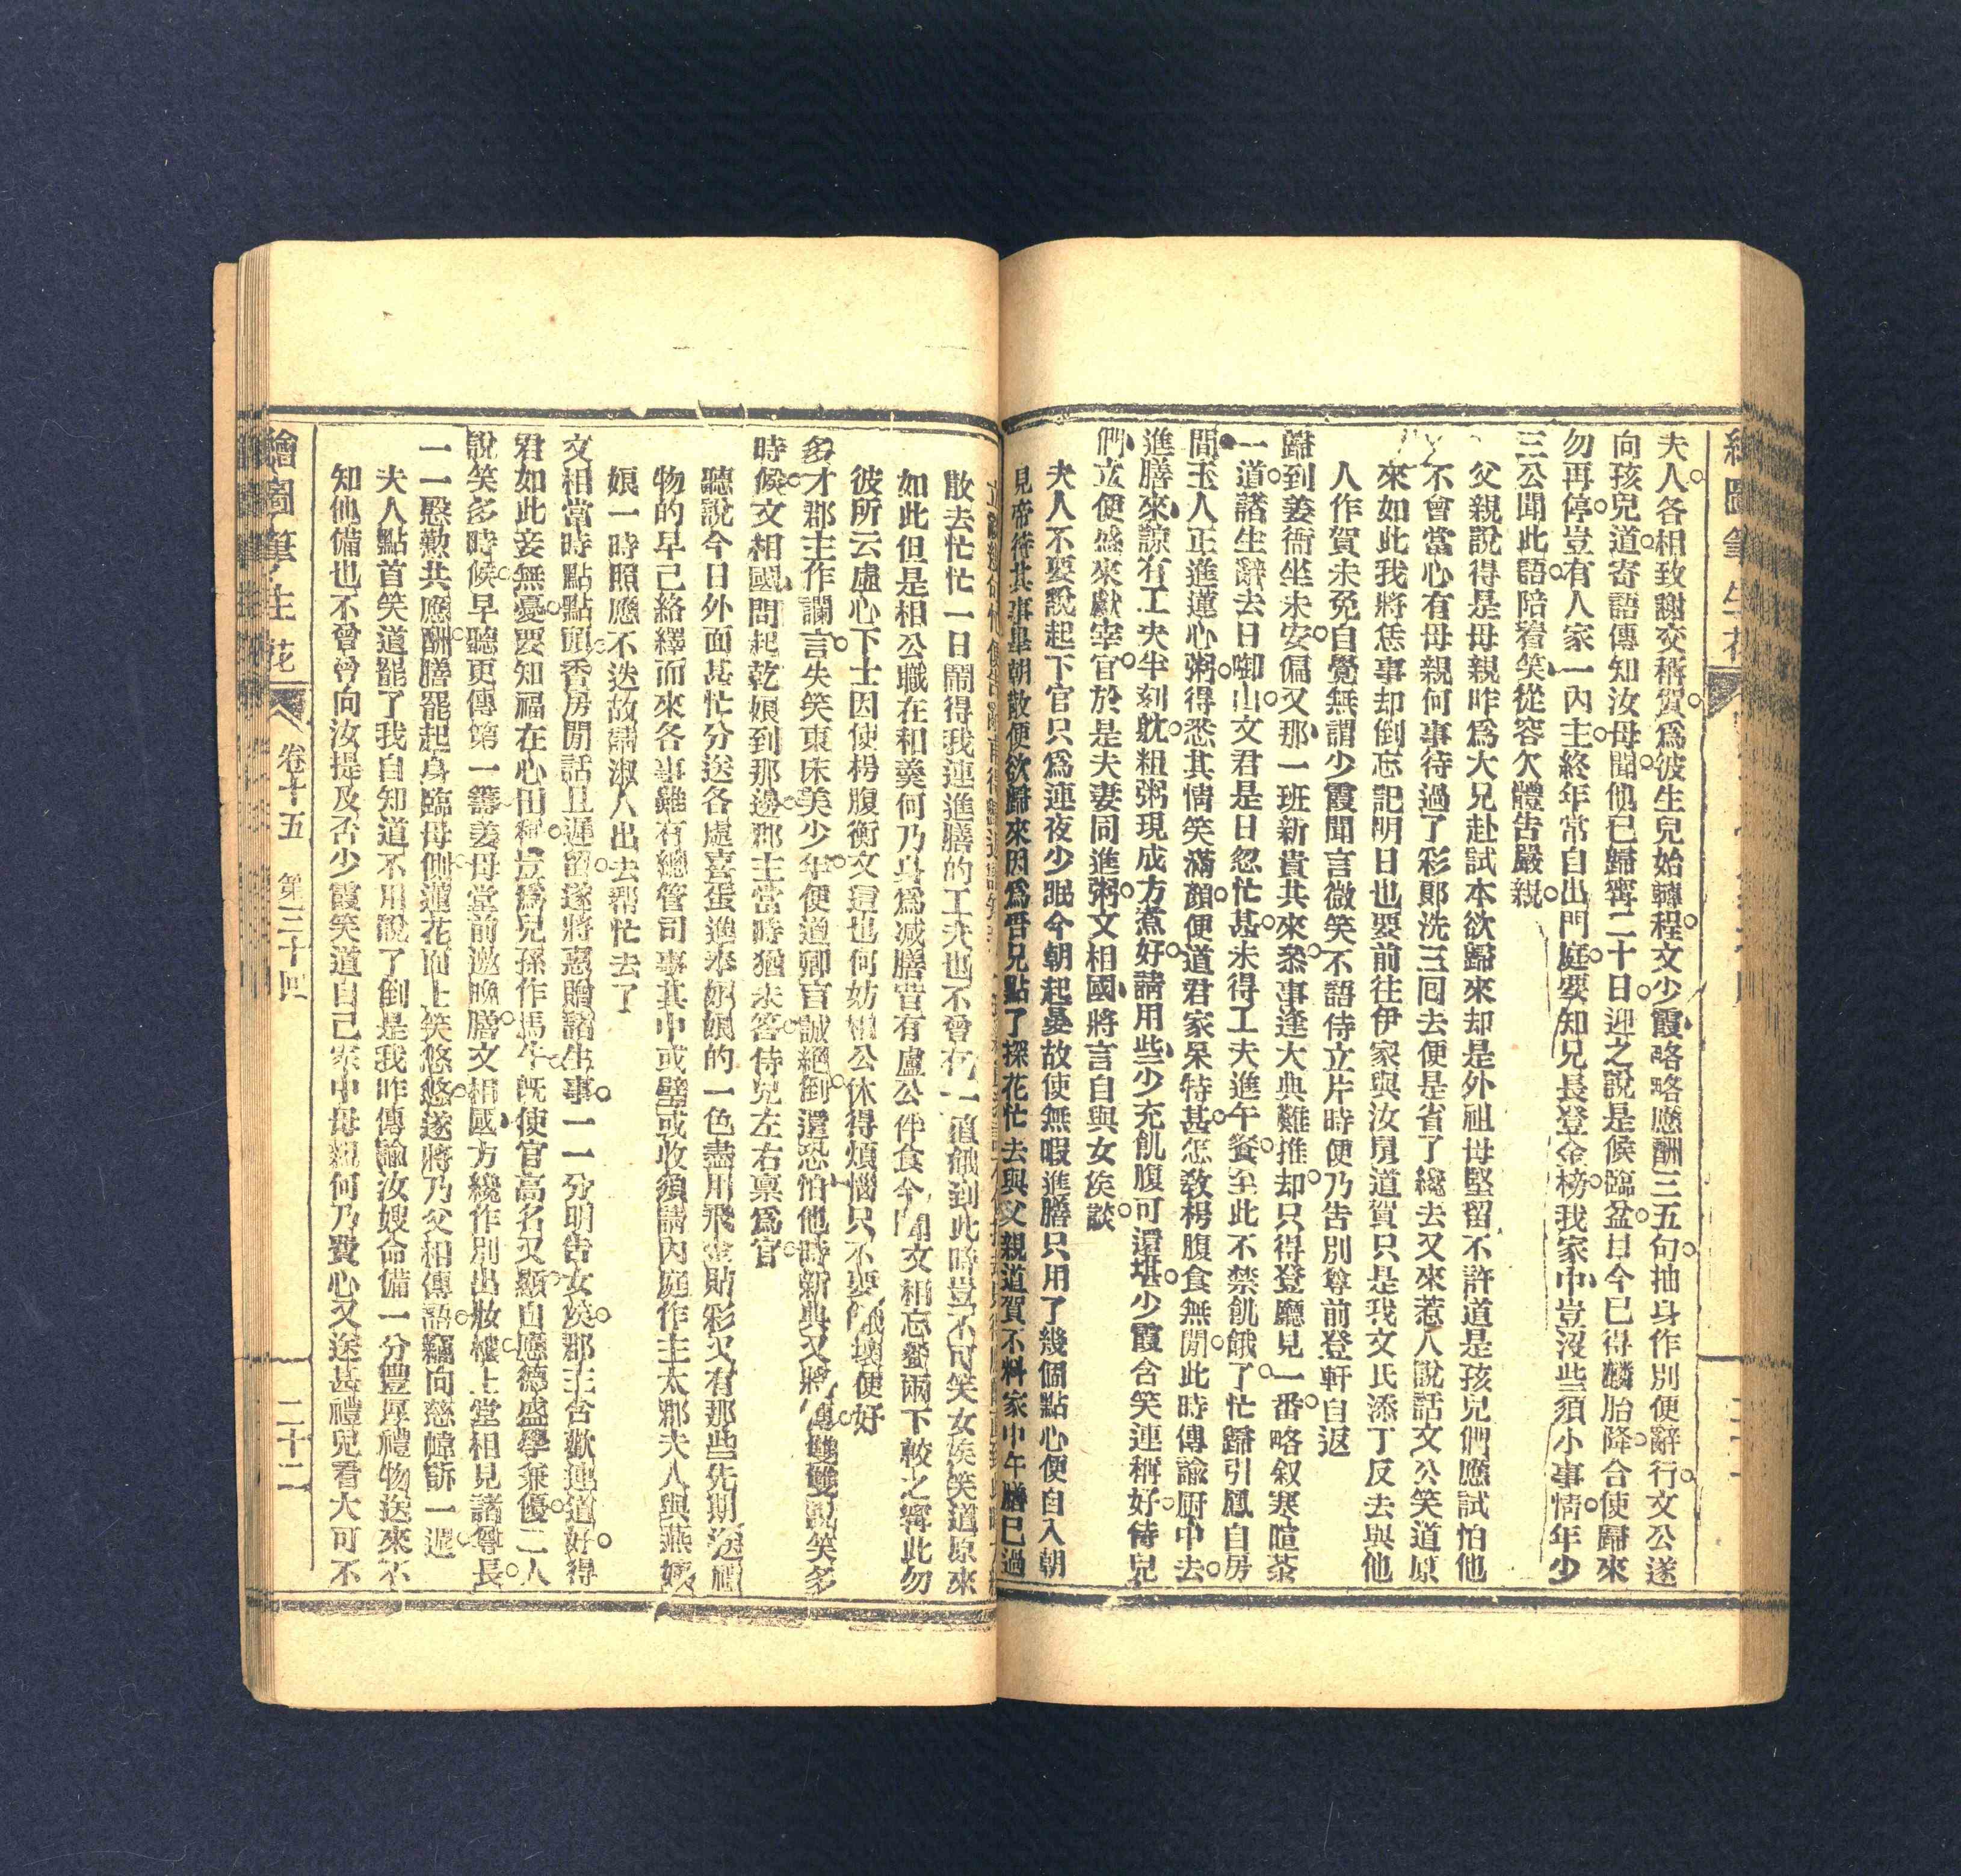 夫人。各相致謝交稱賀。爲彼生兒始轉程。文少霞略略應酬三五句。抽身作別便辭行。文公遂
向孩兒道。寄語傳知汝母聞。他已歸寗二十日。迎之說是候臨盆。日今已得麟胎降。合使歸來
勿再停。豈有人家一內主。終年常自出門庭。要知兄長登金榜。我家中豈沒些須小事情。年少
三公聞此語。陪着笑從容欠體告嚴親。
父親說得是母親昨爲大兄赴試本欲歸來却是外祖母堅留不許道是孩兒們應試怕他
不會當心有母親何事待過了彩郞洗三回去便是省了纔去又來惹人說話文公笑道原
來如此我將恁事却倒忘記明日也要前往伊家與汝舅道賀只是我文氏添丁反去與他
人作賀未免自覺無謂少霞聞言微笑不語侍立片時便乃告別尊前登軒自返
歸到姜衙坐未安。偏又那一班新貴共來叅。事逢大典難推却。只得登廳見一番。略叙寒暄茶
一道。諸生辭去日啣山。文君是日忽忙甚。未得工夫進午餐。至此不禁飢餓了。忙歸引鳳自房
間。玉人正進蓮心粥。得悉其情笑滿顏。便道君家呆特甚。怎敎枵腹食無閒。此時傳諭厨中去。
進膳來諒有工夫半刻躭。粗粥現成方煮好。請用些少充飢腹可還堪。少霞含笑連稱好。侍兒
們立便盛來獻宰官。於是夫妻同進粥。文相國將言自與女矦談。
夫人不要說起下官只爲連夜少眠今朝起晏故使無暇進膳只用了幾個點心便自入朝
見帝待其事畢朝散便欲歸來因爲晋兄點了探花忙去與父親道賀不料家中午膳已過
散去忙忙一日鬧得我連進膳的工夫也不曾有一值餓到此時豈不可笑女矦笑道原來
如此但是相公職在和羹何乃身爲减膳昔有盧公伴食今聞文相忘餐兩下較之寗此勿
彼所云虛心下士因使枵腹衡文這也何妨相公休得煩惱只不要餓壞便好
多才郡主作讕言。失笑東床美少年。便道卿言誠絕倒。還恐怕他時新典又將傳。雙雙說笑多
時候。文相國問起乾娘到那邊。郡主當時猶未答。侍兒左右禀爲官。
聽說今日外面甚忙分送各處喜蛋進奉娘娘的一色盡用飛金貼彩又有那些先期送禮
物的早已絡繹而來各事雖有總管司事其中或璧或收須請內庭作主太郡夫人與燕娘
娘一時照應不迭故請淑人出去帮忙去了
文相當時點點頭。香房閒話且遲留。遂將惠贈諸生事。一一分明告女矦。郡主含歡連道好。得
君如此妾無憂。要知福在心田種。豈爲兒孫作馬牛。旣使官高名又顯。自應德盛學兼優。二人
說笑多時候。早聽更傳第一籌。姜母堂前邀晚膳。文相國方纔作別出妝樓。上堂相見諸尊長。
一一慇懃共應酬。膳罷起身臨母側。蓮花面上笑悠悠。遂將乃父相傳語。竊向慈幃訴一遍。
夫人點首笑道罷了我自知道不用說了倒是我昨傳諭汝嫂命備一分豐厚禮物送來不
知他備也不曾曾向汝提及否少霞笑道自己家中母親何乃費心又送甚禮兒看大可不
繪圖筆生花 卷十五 第三十回 二十二